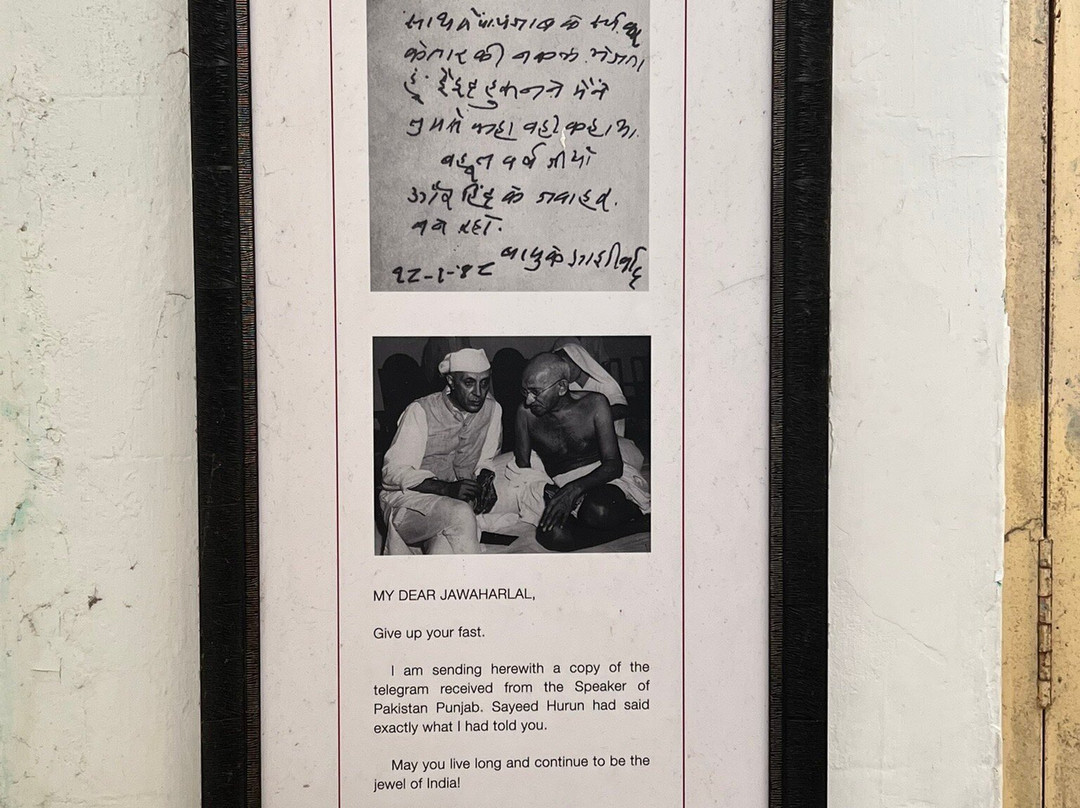 साथ में पंजाब के
के तार की नकल भेजता
हुं. मैंने
तुमसे कहा वही कहा था.
बहूत वर्ष जीयो
और हिंद के जवाहर
बने रहो.
बापुके आशीर्वाद
१८-१-'४८
MY DEAR JAWAHARLAL,
Give up your fast.
I am sending herewith a copy of the
telegram received from the Speaker of
Pakistan Punjab. Sayeed Hurun had said
exactly what I had told you.
May you live long and continue to be the
jewel of India!